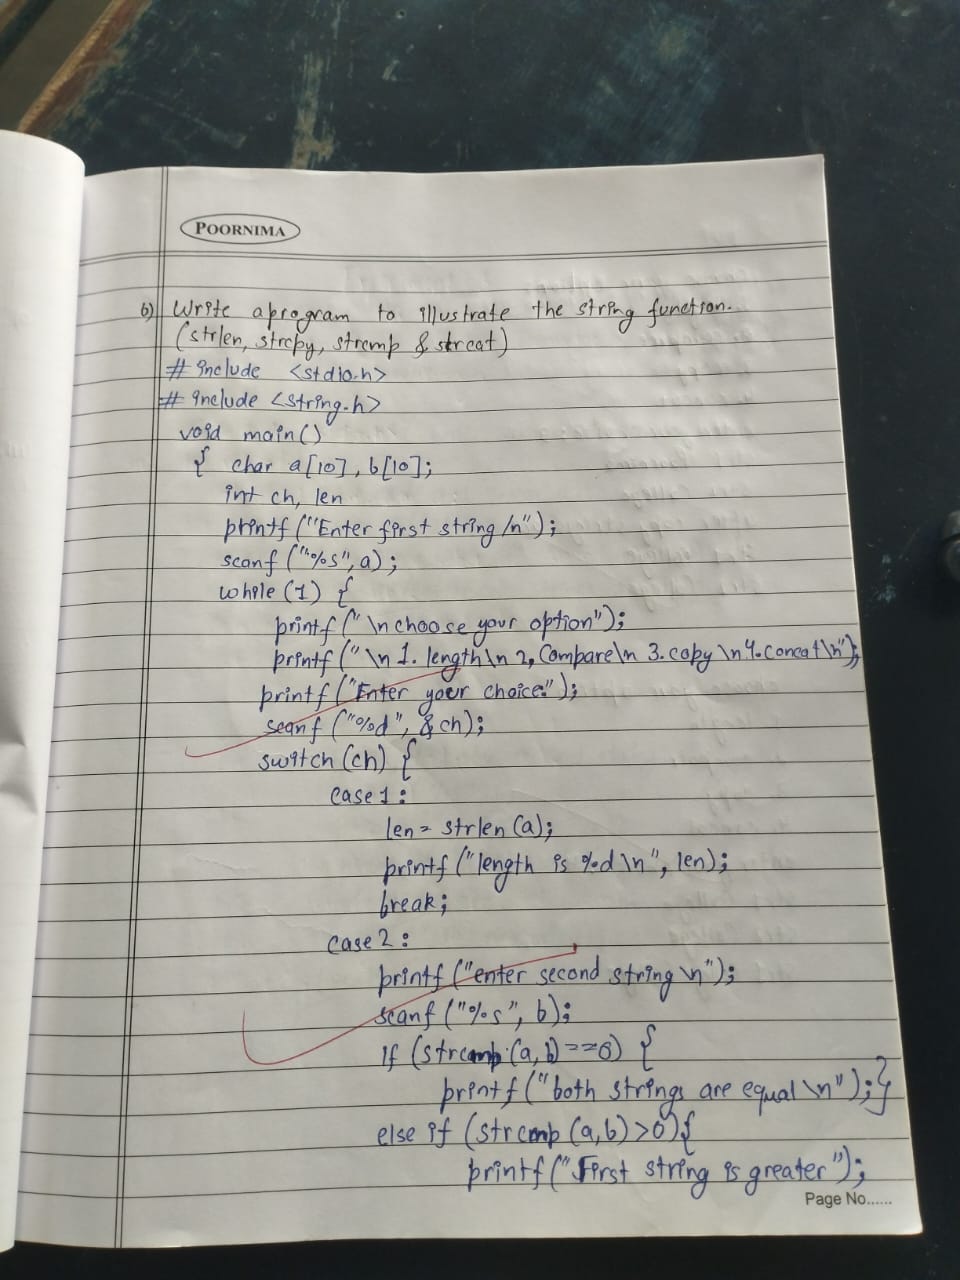 POORNIMA
6) Write a program to illustrate the string function.
(strlen, strcpy, strcmp & strcat)
# include <stdio.h>
# include <string.h>
void main()
{ char a[10], b[10];
int ch, len
printf("Enter first string /n");
scanf("%s", a);
while (1) {
printf("\n choose your option");
printf("\n 1. length\n 2, Compare\n 3. copy \n 4. concat\n");
printf("Enter your choice:");
scanf ("%d", &ch);
switch (ch) {
case 1 :
len = strlen (a);
printf ("length is %d \n", len);
break;
case 2 :
printf ("enter second string \n");
scanf ("%s", b);
if (strcmp (a, b) ==0) {
printf ("both strings are equal \n");}
else if (strcmp (a,b) >0){
printf ("First string is greater");
Page No......